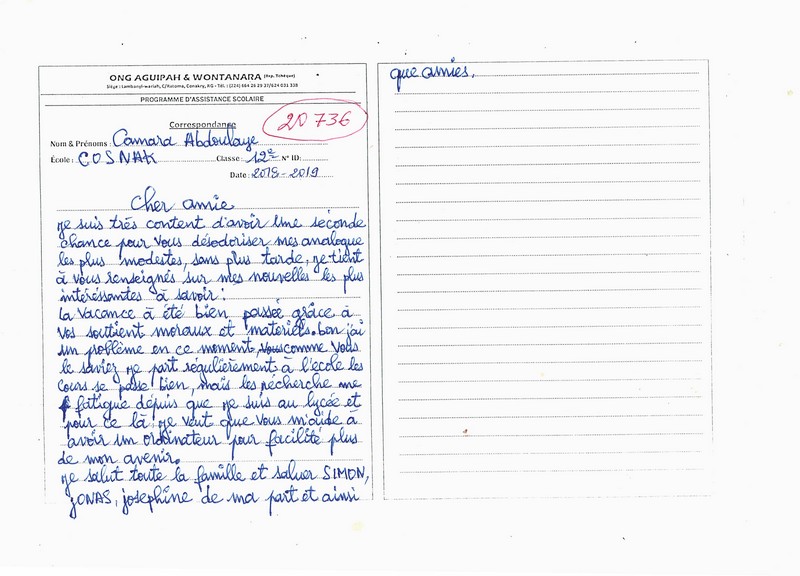 ONG AGUIPAH & WONTANARA (Rép. Tchèque)
Siège : Lambanyi-warish, C/Ratoma, Conakry, RG - Tél. : (224) 664 26 29 37/624 031 338
PROGRAMME D'ASSISTANCE SCOLAIRE
Correspondance
20 736
Nom & Prénoms : Camara Abdoulaye
École : COSNAK Classe : 12e N° ID:
Date : 2018-2019
Cher amie
je suis très content d'avoir Une séconde
chance pour Vous désodoriser mes analogue
les plus modestes, sans plus tarde, je tient
à Vous renseignés sur mes nouvelles les plus
intéréssantes à savoir :
La Vacance à été bien passée grâce à
Vos soutient moraux et matériels. bon j'ai
un problème en ce moment, Vous comme Vous
le saviez je part régulièrement à l'école les
Cours se passe bien, mais les récherche me
fatigue dépuis que je suis au lycée et
pour ce là je veut que Vous m'aide à
avoir un ordinateur pour facilité plus
de mon avenir.
je salut toute la famille et saluer SIMON,
JONAS, josephine de ma part et ainsi
que amies.